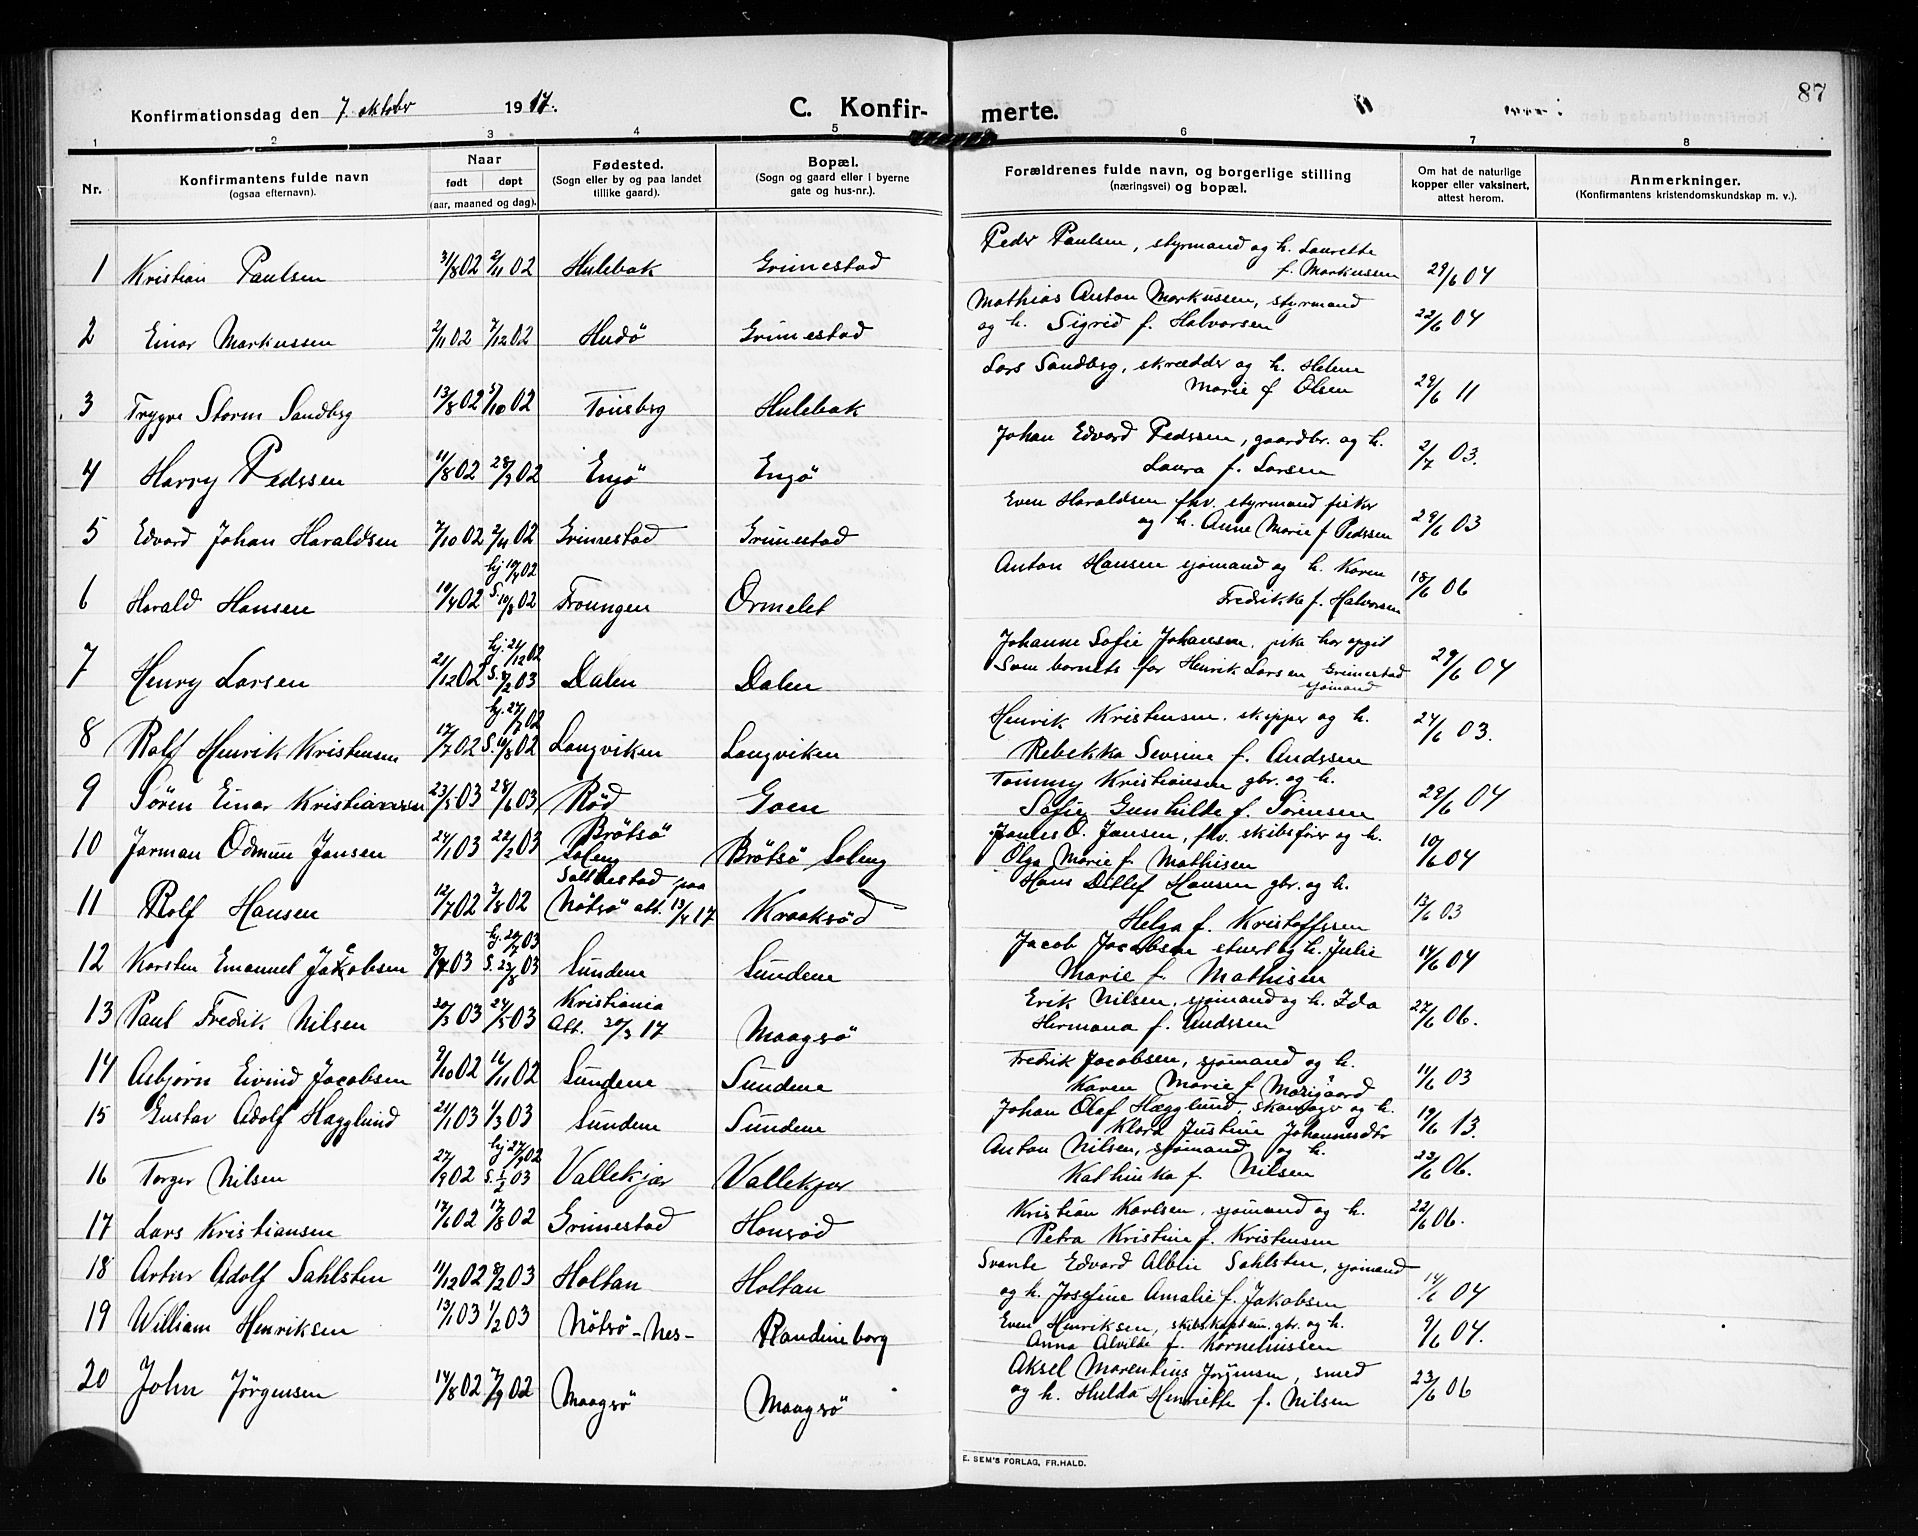 87
Konfirmationsdag den 7. oktobr 1917.
C. Konfir- merte.
1 2 3 4 5 6 7 8
Nr.
Konfirmantens fulde navn
(ogsaa efternavn).
Naar
født døpt
(aar, maaned og dag).
Fødested.
(Sogn eller by og paa landet
tillike gaard).
Bopæl.
(Sogn og gaard eller i byerne
gate og hus-nr.).
Forældrenes fulde navn, og borgerlige stilling
(næringsvei) og bopæl.
Om hat de naturlige
kopper eller vaksinert,
attest herom.
Anmerkninger.
(Konfirmantens kristendomskundskap m. v.).
Peder Paulsen, styrmand og h. Laurette
1 Kristian Paulsen 31/8 02 2/11 02 Hulebak Grimestad f. Markussen 29/6 04
Mathias Anton Markussen, styrmand
2 Einar Markussen 2/11 02 7/12 02 Hudø Grimestad og h. Sigrid f. Halvorsen 22/6 04
Lars Sandberg, skrædder og h. Helene
3 Trygve Storm Sandbrg 13/8 02 5/10 02 Tønsberg Hulebak Marie f Olsen 29/6 11
Johan Edvard Pedssen, gaardbr. og h.
4 Harry Pedssen 11/8 02 28/9 02 Engø Engø Laura f. Larsen 2/7 03.
Even Haraldsen fhv. styrmand fisker
5 Edvard Johan Haraldsen 7/10 02 2/11 02 Grimestad Grimestad og h. Anne Marie f Pedssen 29/6 03
Anton Hansen sjømand og h. Karen
6 Harald Hansen 19/4 02 hj 19/4 02 S. 10/8 02 Froungen Ormelet Fredrikke f. Halvorsen 18/6 06
Johanne Sofie Johansen, pike har opgit
7 Henry Larsen 21/12 02 hj. 21/12 02 S. 8/2 03 Dalen Dalen Som barnets far Henrik Larsen Grimestad sjømand 29/6 04
Henrik Kristensen, skipper og h.
8 Rolf Henrik Kristensen 17/7 02 hj. 27/7 02 S. 10/8 02 Langviken Langviken Rebekka Sevrine f. Andssen 24/6 03.
Tommy Kristiansen gbr. og h.
9 Søren Einar Kristianssen 23/5 03 28/6 03 Rød Goen Sofie Gunhilde f. Sørensen 29/6 04
10 Jarman Odmun Jansen 24/1 03 22/2 03 Brøtsø Soleng Brøtsø Soleng O. Jansen, fhv. skibsfører og h. Olga Marie f. Mathisen 10/6 04
Hans Ditlef Hansen gbr. og h.
11 Rolf Hansen 12/7 02 3/8 02 paa Nøtsø att. 13/4 17 Kraaksød Helga f. Kristoffssen 13/6 03
Jacob Jacobsen stuert og h. Julie
12 Karsten Emanuel Jacobsen 8/7 03 hj. 20/7 03 S. 23/8 03 Sundene Sundene Marie f. Mathisen 14/6 04
Erik Nilsen, sjømand og h. Ida
13 Paul Fredrik Nilsen 20/3 03 24/5 03 Kristiania Att. 20/3 17 Maagsø Hermana f. Andssen 27/6 06.
Fredrik Jacobsen, sjømand og h.
14 Asbjørn Eivind Jacobsen 9/10 02 16/11 02 Sundene Sundene Karen Marie f Morigaard 11/6 03
Johan Olaf Hægglund, skomager og h.
15 Gustav Adolf Hagglund 21/1 03 1/3 03 Sundene Sundene Klara Justine Johannesdtr 19/6 13.
Anton Nilsen, sjømand og h.
16 Torger Nilsen 27/9 02 hj 27/9 02 S. 1/2 03 Vallekjær Vallekjær Kathinka f. Nilsen 23/6 06.
Kristian Karlsen, sjømand og h.
17 Lars Kristiansen 17/6 02 17/8 02 Grimestad Honsød Petra Kristine f. Kristensen 22/6 06.
Svante Edvard Albin Sahlsten, sjømand
18 Artur Adolf Sahlsten 11/12 02 8/2 03 Holtan Holtan og h. Josefine Amalie f. Jakobsen 14/6 04
Even Henriksen, skibskaptein, gbr. og h.
19 William Henriksen 13/1 03 1/2 03 Nøtsø-Nes- Randineborg Anna Alvilde f. Kornelinssen 9/6 04.
Aksel Marentius Jørgensen, smed
20 John Jørgensen 14/8 02 7/9 02 Maagsø Maagsø og h. Hulda Henriette f. Nilsen 23/6 06
E. SEM'S FORLAG, FR.HALD.